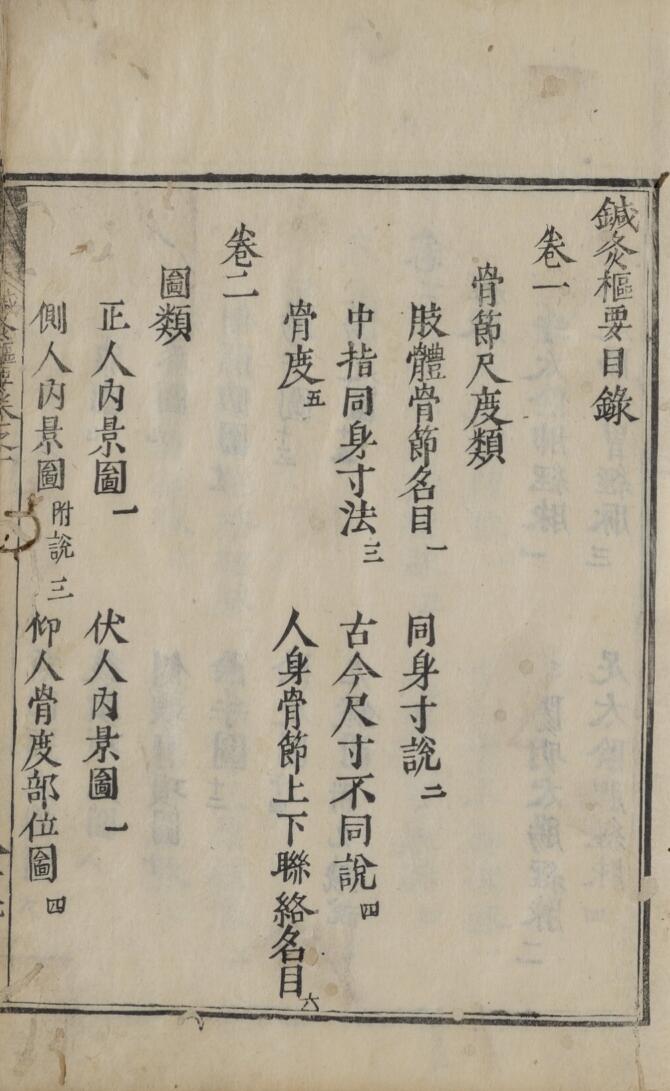 鍼灸樞要目錄
卷一
骨節尺度類
肢體骨節名目一 同身寸說二
中指同身寸法三 古今尺寸不同說四
骨度五 人身骨節上下聯絡名目六
卷二
圖類
正人內景圖一 伏人內景圖一
側人內景圖附說三 仰人骨度部位圖四